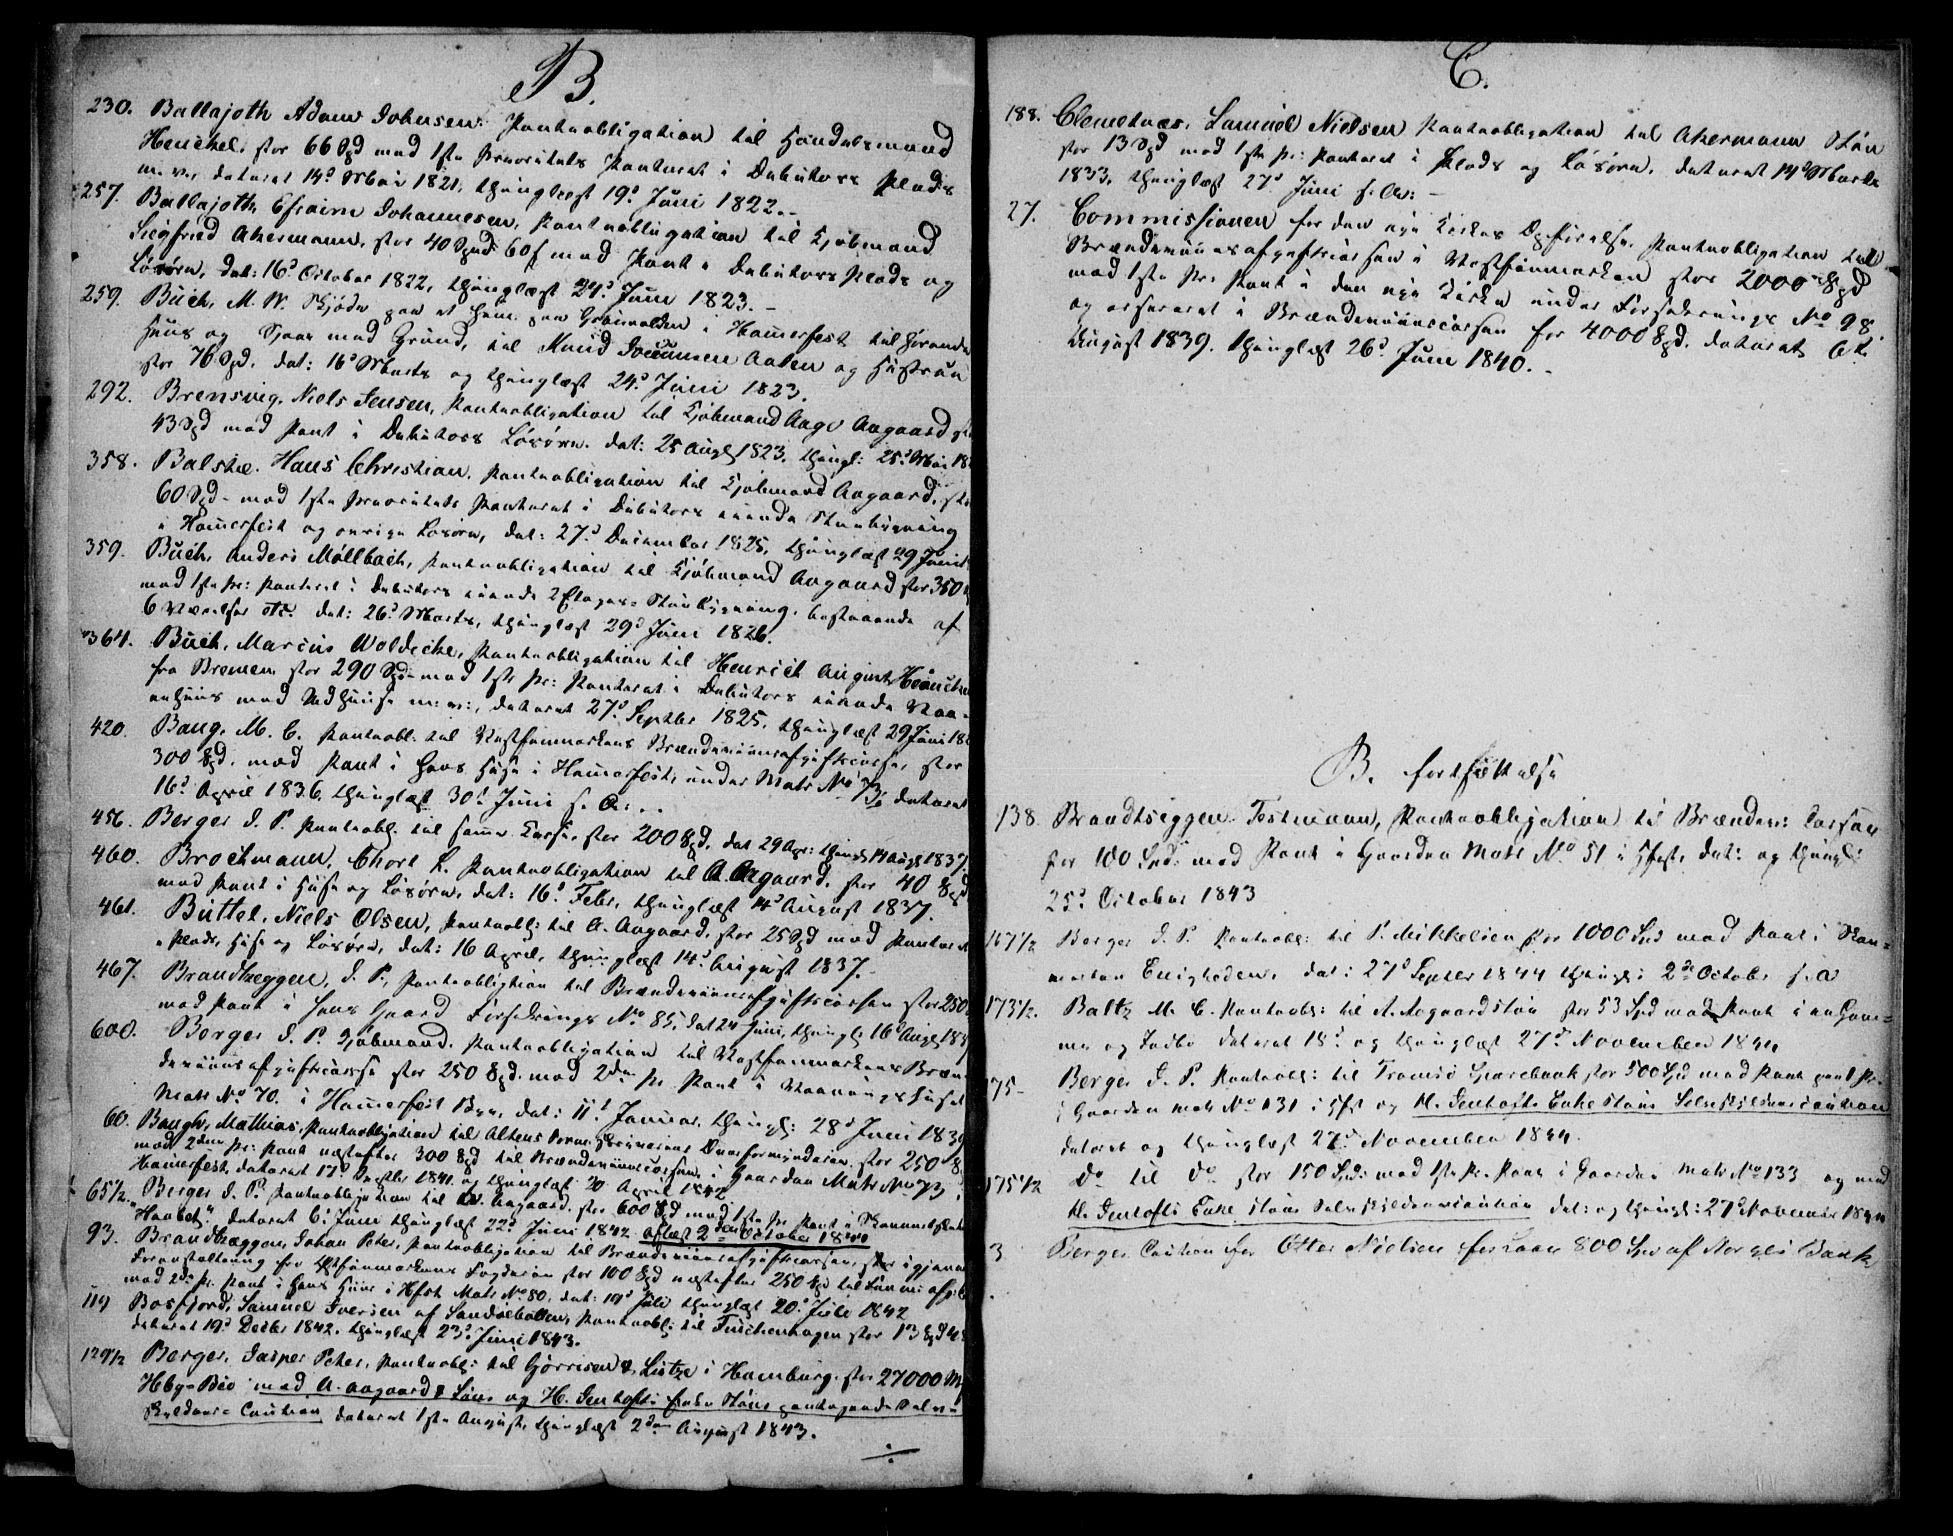 B.
230. Ballajoth Adam Johnsen. Panteobligation til Handelsmand
Henckel, stor 66 Spd med 1ste Prioritets Panteret i Debitors Plads
m. v., dateret 14d Mai 1821, thinglæst 19d Juni 1822. -
257. Ballajoth Efraim Johannesen, Panteobligation til Kjøbmand
Siegfried Akermann, stor 40 Spd 60 ſ med Pant i Debitors Plads og
Løsøre, dat: 16d October 1822, thinglæst 24d Juni 1823. -
259. Buch, M. W. Skjøde paa et ham paa Grønnevolden i Hamerfest tilhørende
Huus og Sjaae med Grund, til Knud Aalen og Hustrue
stor 76 Spd. dat: 16d Marts og thinglæst 24d Juni 1823.
292. Brensvig, Niels Jensen, Panteobligation til Kjøbmand Aage Aagaard st
43 Spd med Pant i Debitors Løsøre. dat: 25 Augt 1823. thingl: 25d Mai 18
358. Balske. Hans Christian. Panteobligation til Kjøbmand Aagaard, st
60 Spd - med 1ste Prioritets Panteret i Debitors eiende Stuebygning
i Hamerfest og øvrige Løsøre, dat: 27d December 1825, thinglæst 29 Juni
359. Buch, Anders Möllbach, Panteobligation til Kjøbmand Aagaard stor 350
med 1ste Pr: Panteret i Debitors eiende 2 Etages Stuebygning, bestaaende af
6 Værelser etc. dat: 26d Marts, thinglæst 29d Juni 1826.
364. Buch, Marcus Woldicke, Panteobligation til Henrich August
fra Bremen stor 290 Spd - med 1ste Pr: Panteret i Debitors eiende Vaa-
nehuus med Udhuuse m: v:, dateret 27d Septbr 1825. thinglæst 29 Juni 18
420. Bang. M. C. Panteobl. til Vestfinmarkens Brændeviinsafgiftscasse, stor
300 Spd. med Pant i hans Huse i Hamerfest, under Matr No 73, dateret
16d April 1836, thinglæst 30d Juni s. A. -
456. Berger J. P. Panteobl. til samme Casse, stor 200 Spd, dat 29 Apr: thingl 14 Augt 1837.
460. Brochmann, Chorl L. Panteobligation til A. Aagaard, stor 40 Spd
med Pant i Huse og Løsøre, dat: 16d Febr, thinglæst 14d August 1837.
461. Büttel, Niels Olsen, Panteobl: til A. Aagaard, stor 25 Spd med Panteret
i Plads, Huse og Løsøre, dat: 16 April, thinglæst 14d August 1837. -
467. Brandtzeggen, J. P, Panteobligtion til Brændeviinsafgiftscassen stor 250
med Pant i hans Gaard Forsikrings No 85, dat 24 Juni, thingl 16d Augt 183
600. Berger J. P. Kjøbmand, Panteobligation til Vestfinmarkens Bræn-
deviinsafgiftscasse stor 250 Spd. med 2den Pr. Pant i Vaaningshuset
Matr No 70. i Hamerfest Bye, dat: 11d Januar, thingl: 28d Juni 1839
60. Bangh, Mathias, Panteobligation til Altens Sorenskriveries Overformynderie, stor 250 S
med 2den Pr: Pant næstefter 300 Spd til Brændeviinscassen, i Gaarden Matr No 73 i
Hamerfest, dateret 17d Septbr 1841. og thinglæst 20 April 1842.
65 1/2. Berger J. P. Panteobligation til A. Aagaard, stor 600 Spd med 1ste Pr Pant i
"Haabet". dateret 6d Juni thinglæst 22d Juni 1842. aflæst 2den October 1844
93. Brandtzeggen, Johan Peter, Panteobligation til Brændeviinsafgiftscassen, stor igjennem
Foranstaltning fra Vestfinmarkens Fogderie stor 100 Spd næstefter 250 Spd til
med 2den Pr. Pant i hans Huus i Hfst Matr No 80, dat: 19d Juli thinglæst 20d Juli 1842
114 Bosfjord, Samuel Iversen af Sandøebotten, Panteobl: til Finckenhagen stor 13 Spd
dateret 19d Decbr 1842. thinglæst 23d Juni 1843.
129 1/2 Berger, Jasper Peter, Panteobl: til Görrisen & Lütze i Hamburg, stor 27000 M
Hbg Bco med A. Aagaard & Søns og H. Gentofts Enke Støns Selv-
skyldner-Caution dateret 1ste August, thinglæst 2den August 1843.
÷
C.
188. Clemetnæs. Samuel Nielsen Panteobligation til Akermann Støn
stor 13 Spd med 1ste Pr: Panteret i Plads og Løsøre, dateret 14d Marts
1833, thinglæst 27d Juni s. A: -
27. Commissionen for den nye Kirkes Opførelse, Panteobligation til
Brændeviinsafgiftscassen i Vestfinmarken stor 2000 Spd
med 1ste Pr. Pant i den nye Kirke under Forsikrings No 98
og assureret i Brændeviinscassen for 4000 Spd. dateret 6te
August 1839. thinglæst 26d Juni 1840. -
B. fortsættelse
138. Brandtseggen Testmann, Panteobligation til Brændev: Cassen
for 100 Spd: med Pant i Gaarden Matr No 51 i Hfst, dat: og thingl:
25d October 1843
167 1/2 Berger J. P. Panteobl: til P. Mikkelsen for 1000 Spd med Pant i Skon-
nerten Enigheden. dat: 27d Septbr 1844 thingl: 2d Octobr s. A
173 1/2. Baltz M. C. Panteobl: til A. Aagaard støn stor 53 Spd med Pant i en Gam-
me og Jordbo dateret 18d og thinglæst 27d November 1844
175 - Berger J. P. Panteobl: til Tromsö Sparebank stor 500 Spd med Pant
i Gaarden Matr No 131 i Hfst og H. Gentofts Enke Støns Selvskyldnercaution
dateret og thinglæst 27d November 1844.
175 1/2 Do til do stor 150 Spd: med 1ste Pr. Pant i Gaarden Matr No 133 og med
H. Gentofts Enke støns Selvskyldnercaution dat: og thingl: 27d November 1844
3 Berger Caution for Otter Nielsen for 800 Spd af Norges Bank